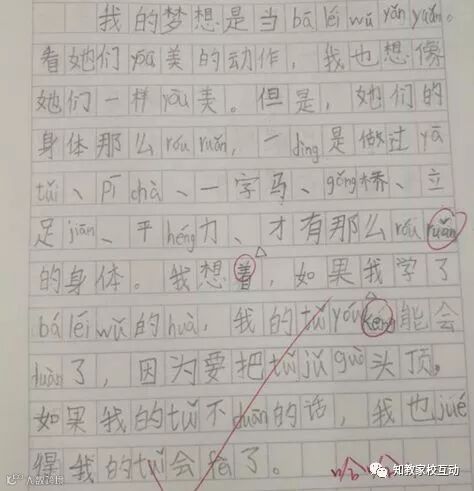 我的梦想是当bā léi wǔ yǎn yuán。
看她们yōu美的动作，我也想像
她们一样yōu美。但是，她们的
身体那么róu ruǎn，一dìng是做过yā
tuǐ、pī chà、一字马、gǒng桥、立
足jiān、平héng力、才有那么róu ruǎn
的身体。我想着，如果我学了
bá léi wǔ的huà，我的tuǐ yǒu kěn能会
duàn了，因为要把tuǐ jǔ guò头顶。
如果我的tuǐ不duàn的话，我也jué
得我的tuǐ会fèi了。
哈哈
知教家校互动